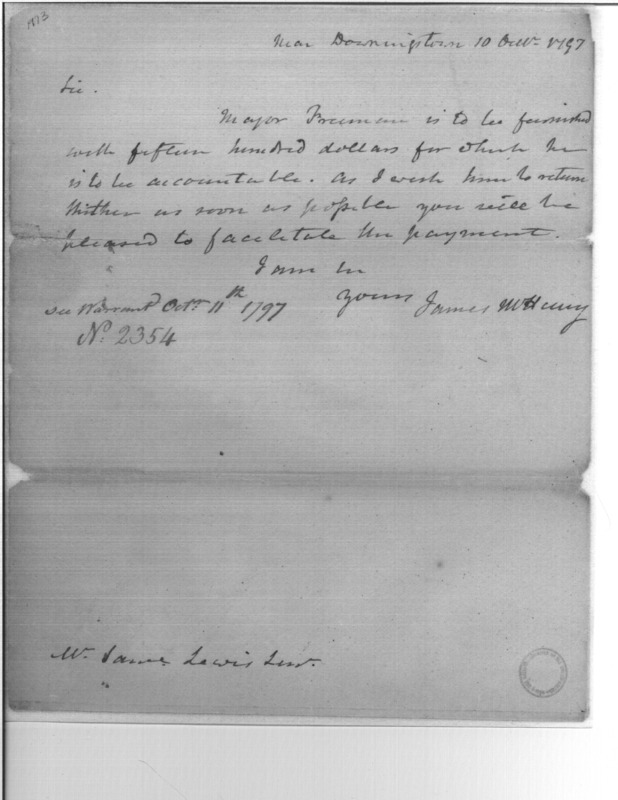 1873
Near Downingstown 10 Octbr. 1797
Sir.
Major Freeman is to be furnished
with fifteen hundred dollars for which he
is to be accountable. As I wish him to return
thither as soon as possible you will be
pleased to facilitate the payment.
I am Sir
yours James McHenry
See Warrant Octr. 11th 1797
No. 2354
Mr. James Lewis